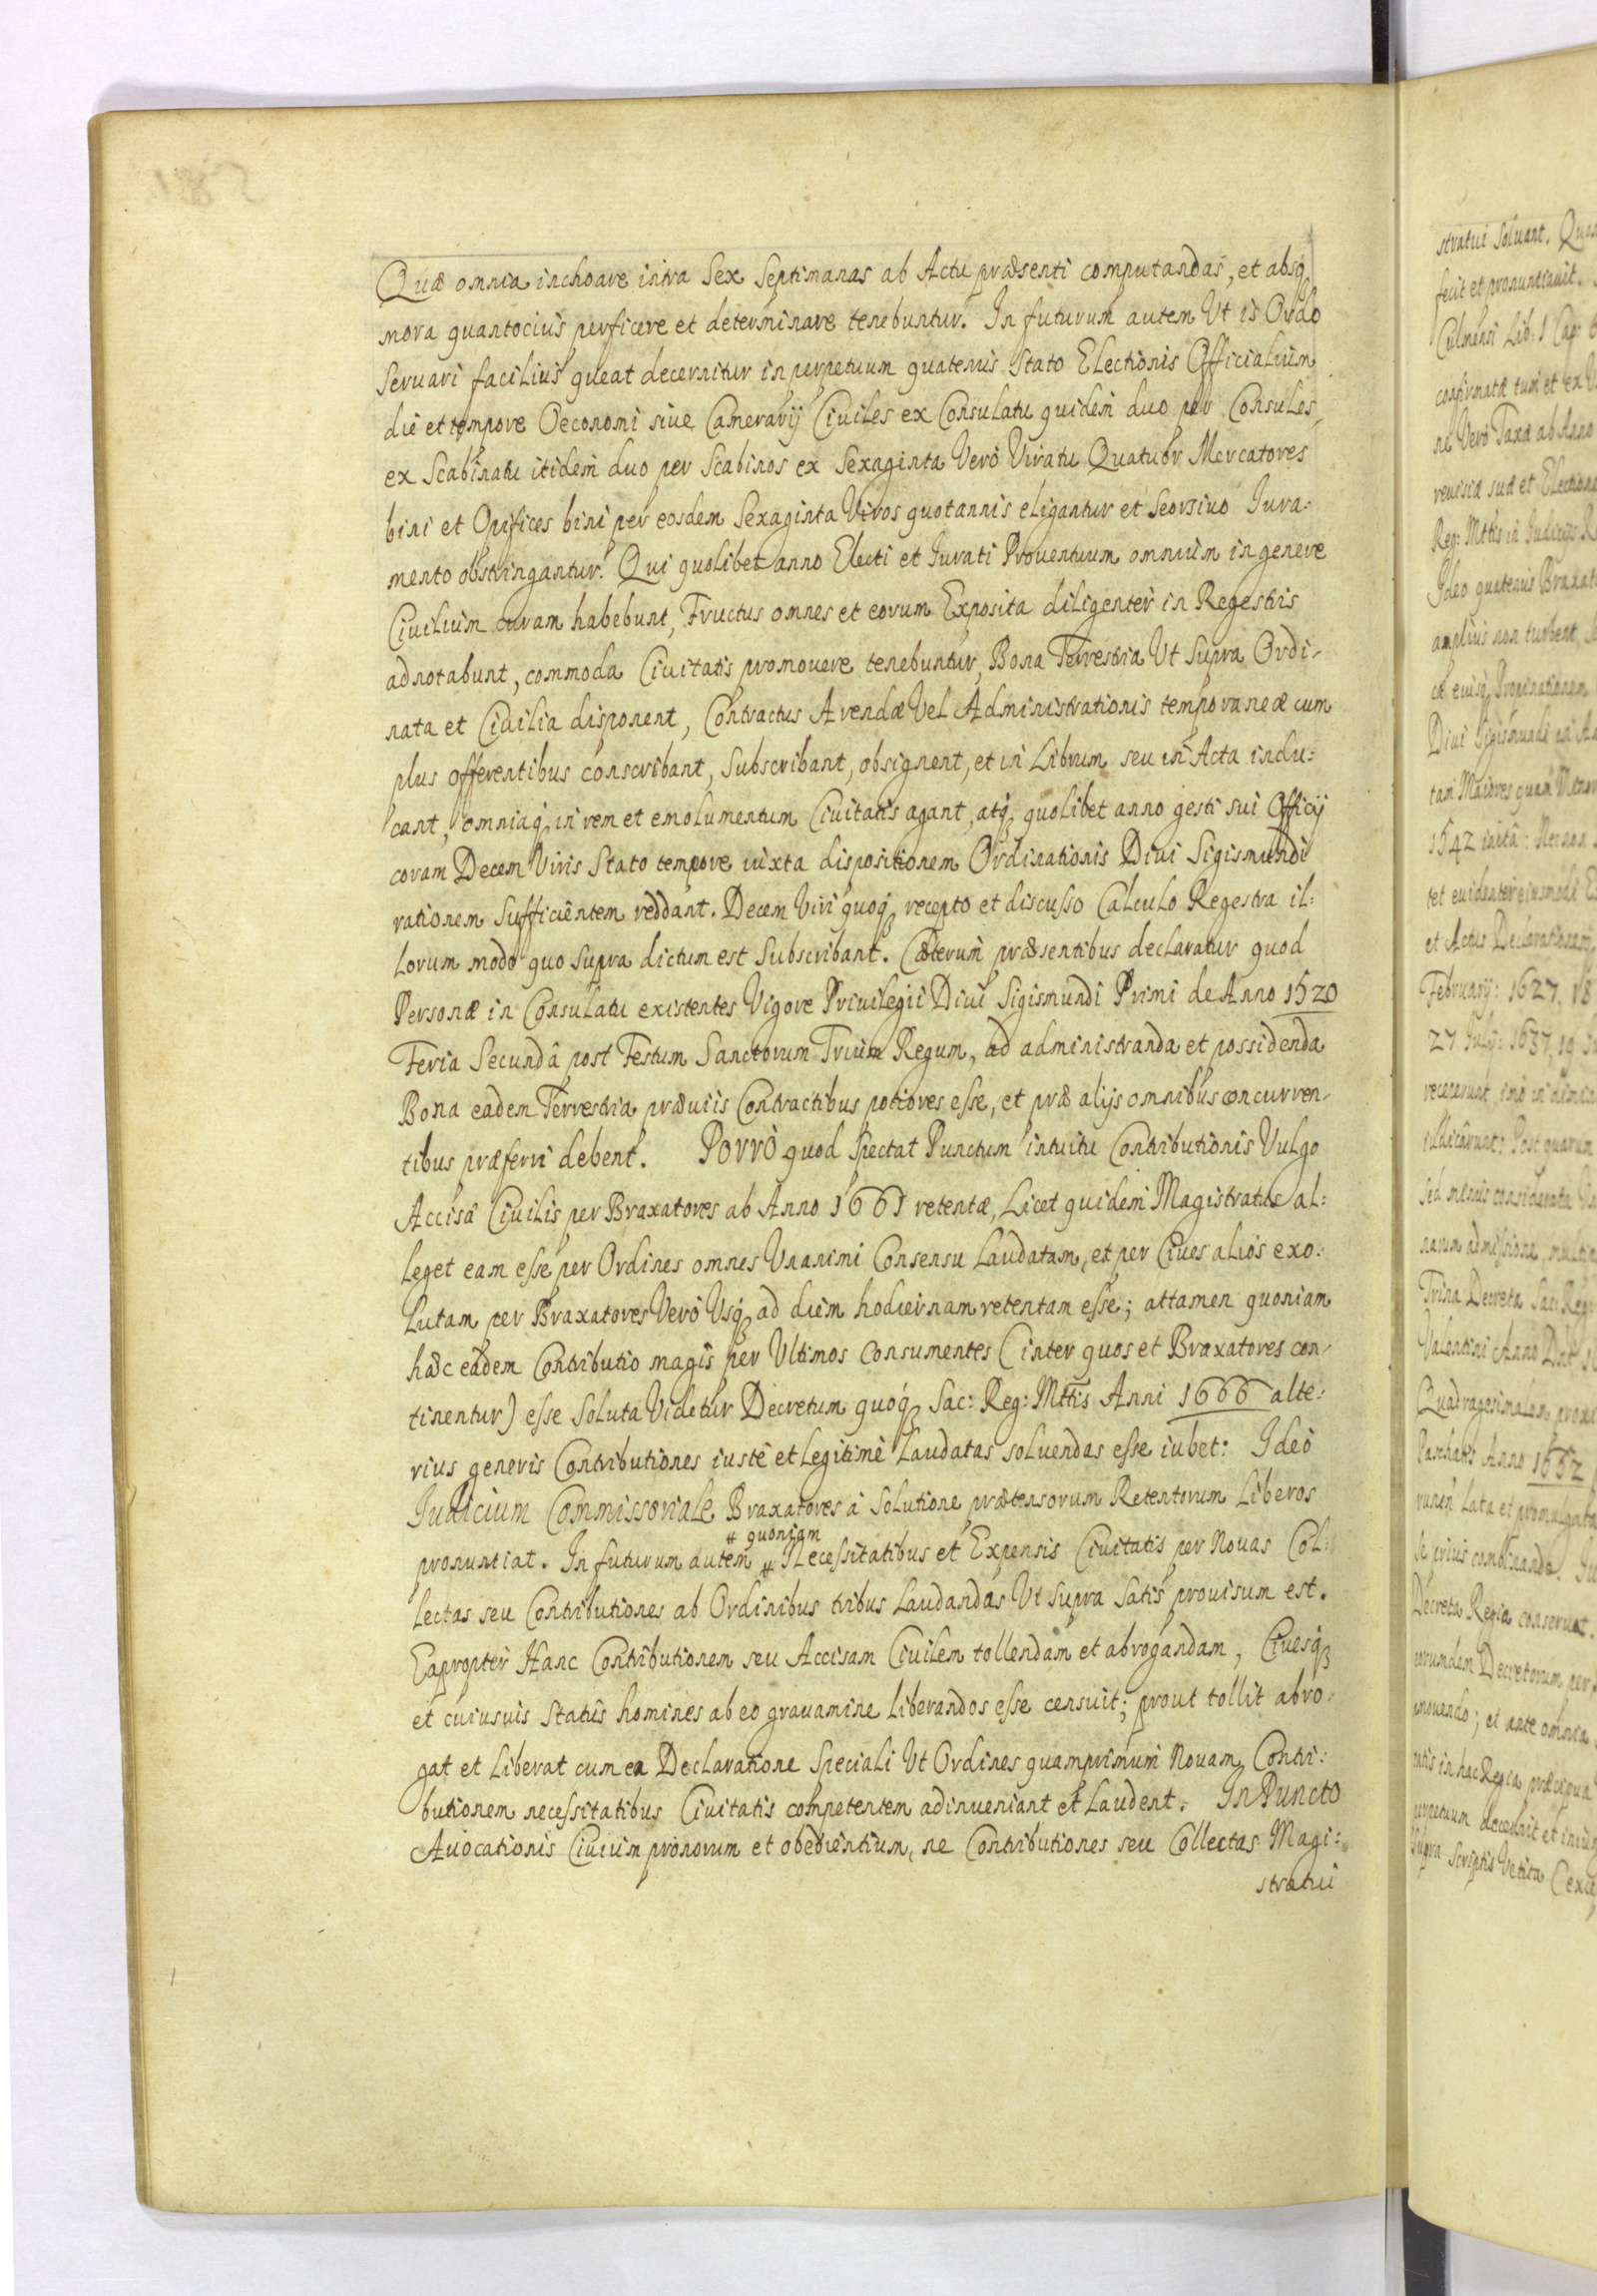 Quæ omnia inchoare intra Sex Septimanas ab Actu præsenti computandas, et absq3
mora quantociùs perficere et determinare tenebuntur. In futurum autem Vt is Ordo
Servari faciliùs queat decernitur in perpetuum quatenus Stato Electionis Officialium
die et tempore Oeconomi siue Camerarij Ciuiles ex Consulatu quidem duo per Consules,
ex Scabinatu itidem duo per Scabinos ex Sexaginta Verò Viratu Quatuor Mercatores
bini et Opifices bini per eosdem Sexaginta Viros quotannis eligantur et Seorsiuo Iura:
mento obstringantur. Qui quolibet anno Electi et Iurati Prouentuum omnium in genere
Ciuilium curam habebunt, Fructus omnes et eorum Exposita diligenter in Regestris
adnotabunt, commoda Ciuitatis promouere tenebuntur, Bona Terrestria Vt Supra Ordi-
nata et Ciuilia disponent, Contractus Arendæ Vel Administrationis temporaneæ cum
plus offerentibus conscribant, Subscribant, obsignent, et in Librum seu in Acta indu:
cant, omniaq3 in rem et emolumentum Ciuitatis agant, atq3 quolibet anno gesti sui Officij
coram Decem Viris Stato tempore iuxta dispositionem Ordinationis Diui Sigismundi
rationem Sufficientem reddant. Decem Viri quoq3 recepto et discusso Calculo Regestra il:
lorum modo quo Supra dictum est Subscribant. Cæterum præsentibus declaratur quod
Personæ in Consulatu existentes Vigore Priuilegii Diui Sigismundi Primi de Anno 1520
Feria Secundâ post Festum Sanctorum Trium Regum, ad administranda et possidenda
Bona eadem Terrestria præuiis Contractibus potiores esse, et præ alijs omnibus concurren-
tibus præferri debent. Porrò quod Spectat Punctum intuitu Contributionis Vulgo
Accisâ Ciuilis per Braxatores ab Anno 1661 retentæ, Licet quidem Magistratus al:
leget eam esse per Ordines omnes Vnanimi Consensu Laudatam, et per Ciues alios exo:
lutam per Braxatores Verò Vsq3 ad diem hodiernam retentam esse; attamen quoniam
hæc eadem Contributio magis per Vltimos Consumentes (inter quos et Braxatores con-
tinentur) esse Soluta Videtur Decretum quoq3 Sac: Reg: Mttis Anni 1666 alte:
rius generis Contributiones iustè et Legitimè Laudatas soluendas esse iubet: Ideò
Iudicium Commissoriale Braxatores à Solutione prætensorum Retentorum Liberos
# quoniam
pronuntiat. In futurum autem # Necessitatibus et Expensis Ciuitatis per Nouas Col:
lectas seu Contributiones ab Ordinibus tribus Laudandas Vt Supra Satis prouisum est.
Eapropter Hanc Contributionem seu Accisam Ciuilem tollendam et abrogandam, Ciuesq3
et cuiusuis Statûs homines ab eo grauamine Liberandos esse censuit; prout tollit abro-
gat et Liberat cum ea Declaratione Speciali Vt Ordines quamprimum Nouam Contri:
butionem necessitatibus Ciuitatis competentem adinueniant et Laudent. In Puncto
Auocationis Ciuium pronorum et obedientium, ne Contributiones seu Collectas Magi:
stratui